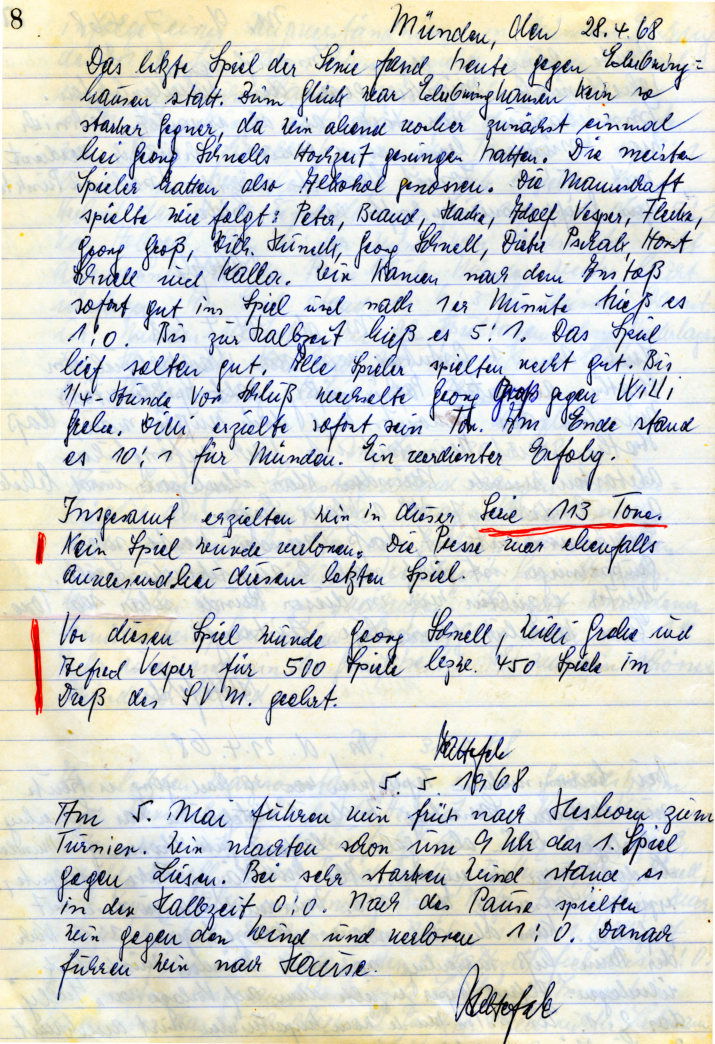 8
Münden, den 28.4.68
Das letzte Spiel der Serie fand heute gegen
hausen statt. Zum Glück war kein so
starker Gegner, da wir abend vorher zunächst einmal
bei Georg Schnells Hochzeit gesungen hatten. Die meisten
Spieler hatten also Alkohol genossen. Die Mannschaft
spielte wie folgt: Peter, Adolf Vesper,
Georg Groß, Georg Schnell, Horst
Schnell und Kalla. Wir kamen nach dem Anstoß
sofort gut ins Spiel und nach 1er Minute hieß es
1:0. Bis zur Halbzeit hieß es 5:1. Das Spiel
lief selten gut. Alle Spieler spielten recht gut. Bis
1/4-Stunde vor Schluß wechselte Georg Groß gegen Willi
Grebe. Willi erzielte sofort sein Tor. Am Ende stand
es 10:1 für Münden. Ein verdienter Erfolg.
Insgesamt erzielten wir in dieser Serie 113 Tore.
Kein Spiel wurde verloren. Die Presse war ebenfalls
anwesend bei diesem letzten Spiel.
Vor diesen Spiel wurde Georg Schnell, Willi Grebe und
Vesper für 500 Spiele bezw. 450 Spiele im
Dreß des SVM. geehrt.
5. 5. 1968
Am 5. Mai fuhren wir früh nach Hesborn zum
Turnier. Wir machten schon um 9 Uhr das 1. Spiel
gegen Liesen. Bei sehr starken Wind stand es
in der Halbzeit 0:0. Nach der Pause spielten
wir gegen den Wind und verloren 1:0. Danach
fuhren wir nach Hause.